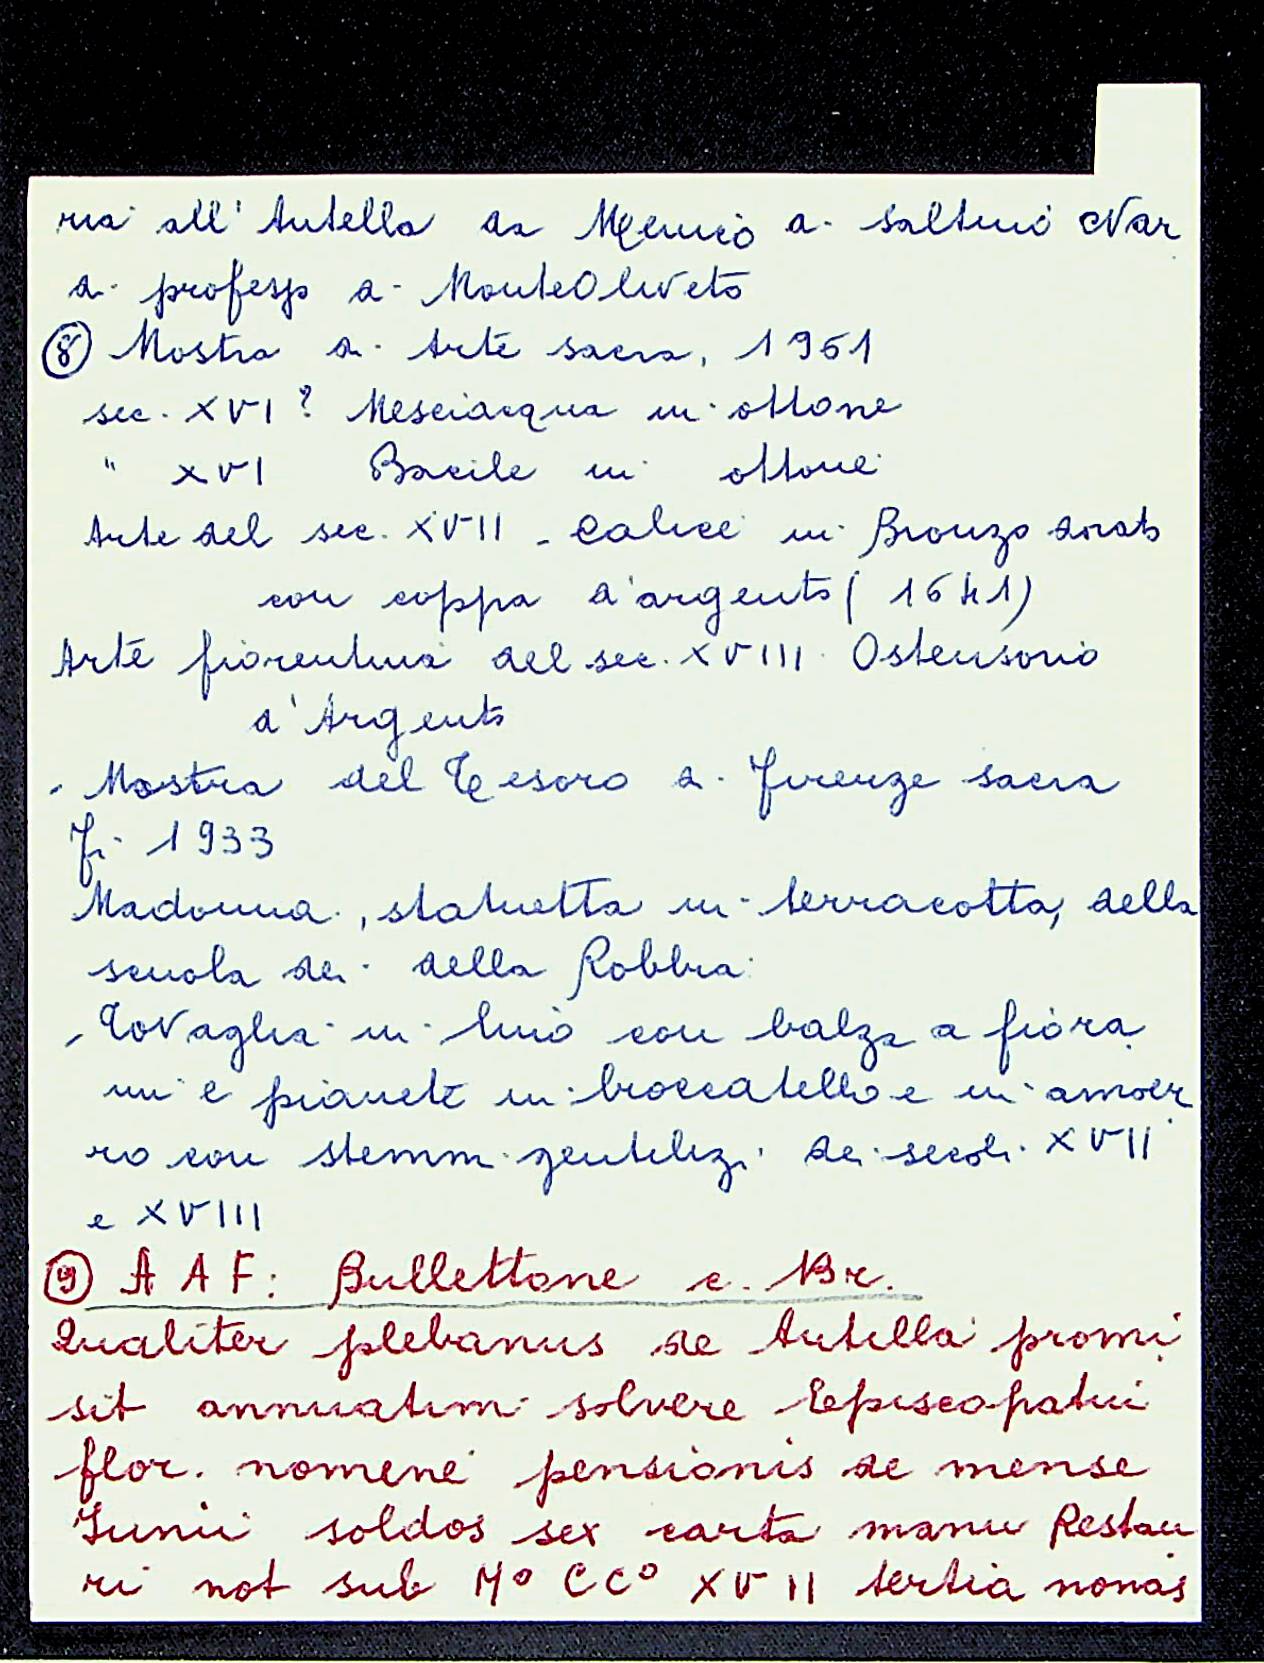 ria all'Antella da Memio di Saltino Nar
di profess di MonteOliveto
⑧ Mostra di Arte sacra, 1961
sec. XVI? Mesciacqua in ottone
" XVI Bacile in ottone
Arte del sec. XVII - Calice in Bronzo dorato
con coppa d'argento (1641)
Arte fiorentina del sec. XVIII Ostensorio
d'Argento
- Mostra del Tesoro di Firenze sacra
Fi 1933
Madonna, statuetta in terracotta, della
scuola dei della Robbia
- Tovaglia in lino con balza a fiora
mi e pianete in broccatello e in amoer
ro con stemmi gentilizi dei secoli XVII
e XVIII
⑨ A A F: Bullettone c. 13r.
Qualiter plebanus de Antilla promi
sit annuatim solvere Episcopatui
flor. nomine pensionis de mense
Iunii soldos sex carta manu Restau
ri not sub M° CC° XVII tertia nonas